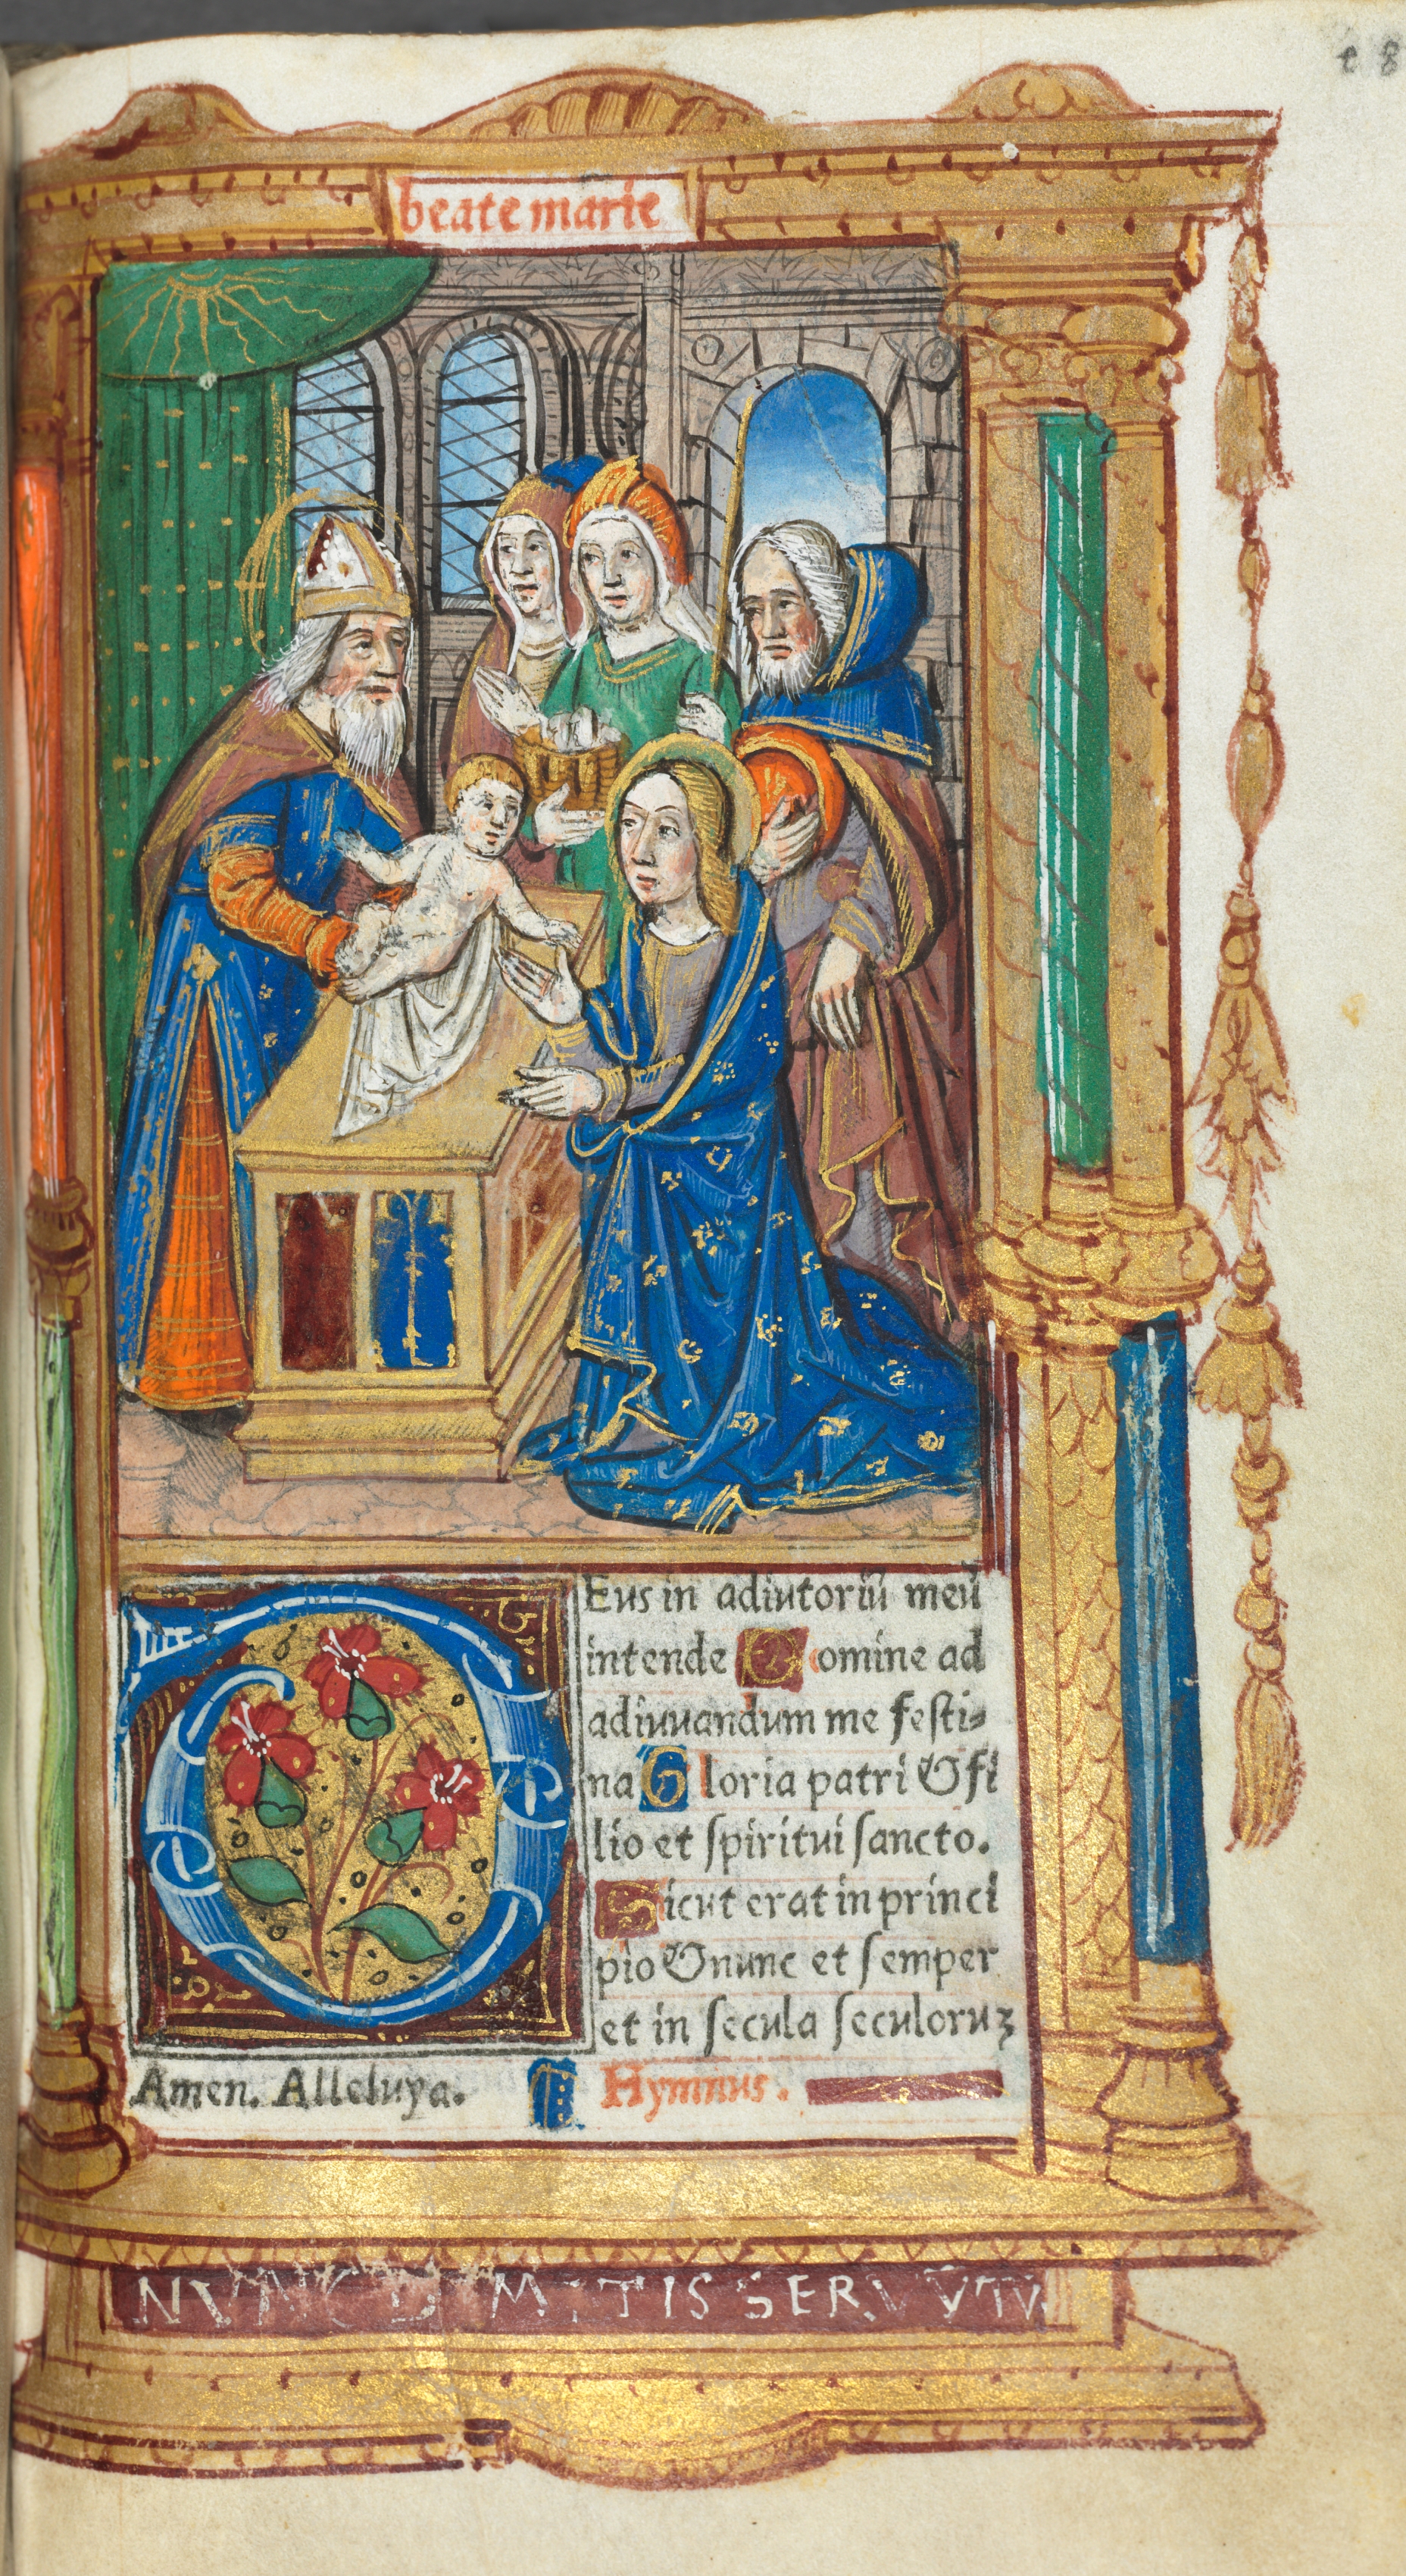 e 8
beate marie
Eus in adiutoriū meū
intende Domine ad
adiuuandum me festi-
na Gloria patri & fi
lio et spiritui sancto.
Sicut erat in princi
pio & nunc et semper
et in secula seculoruꝫ
Amen. Alleluya. Hymnus.
NVNC DIMITIS SERVVTV